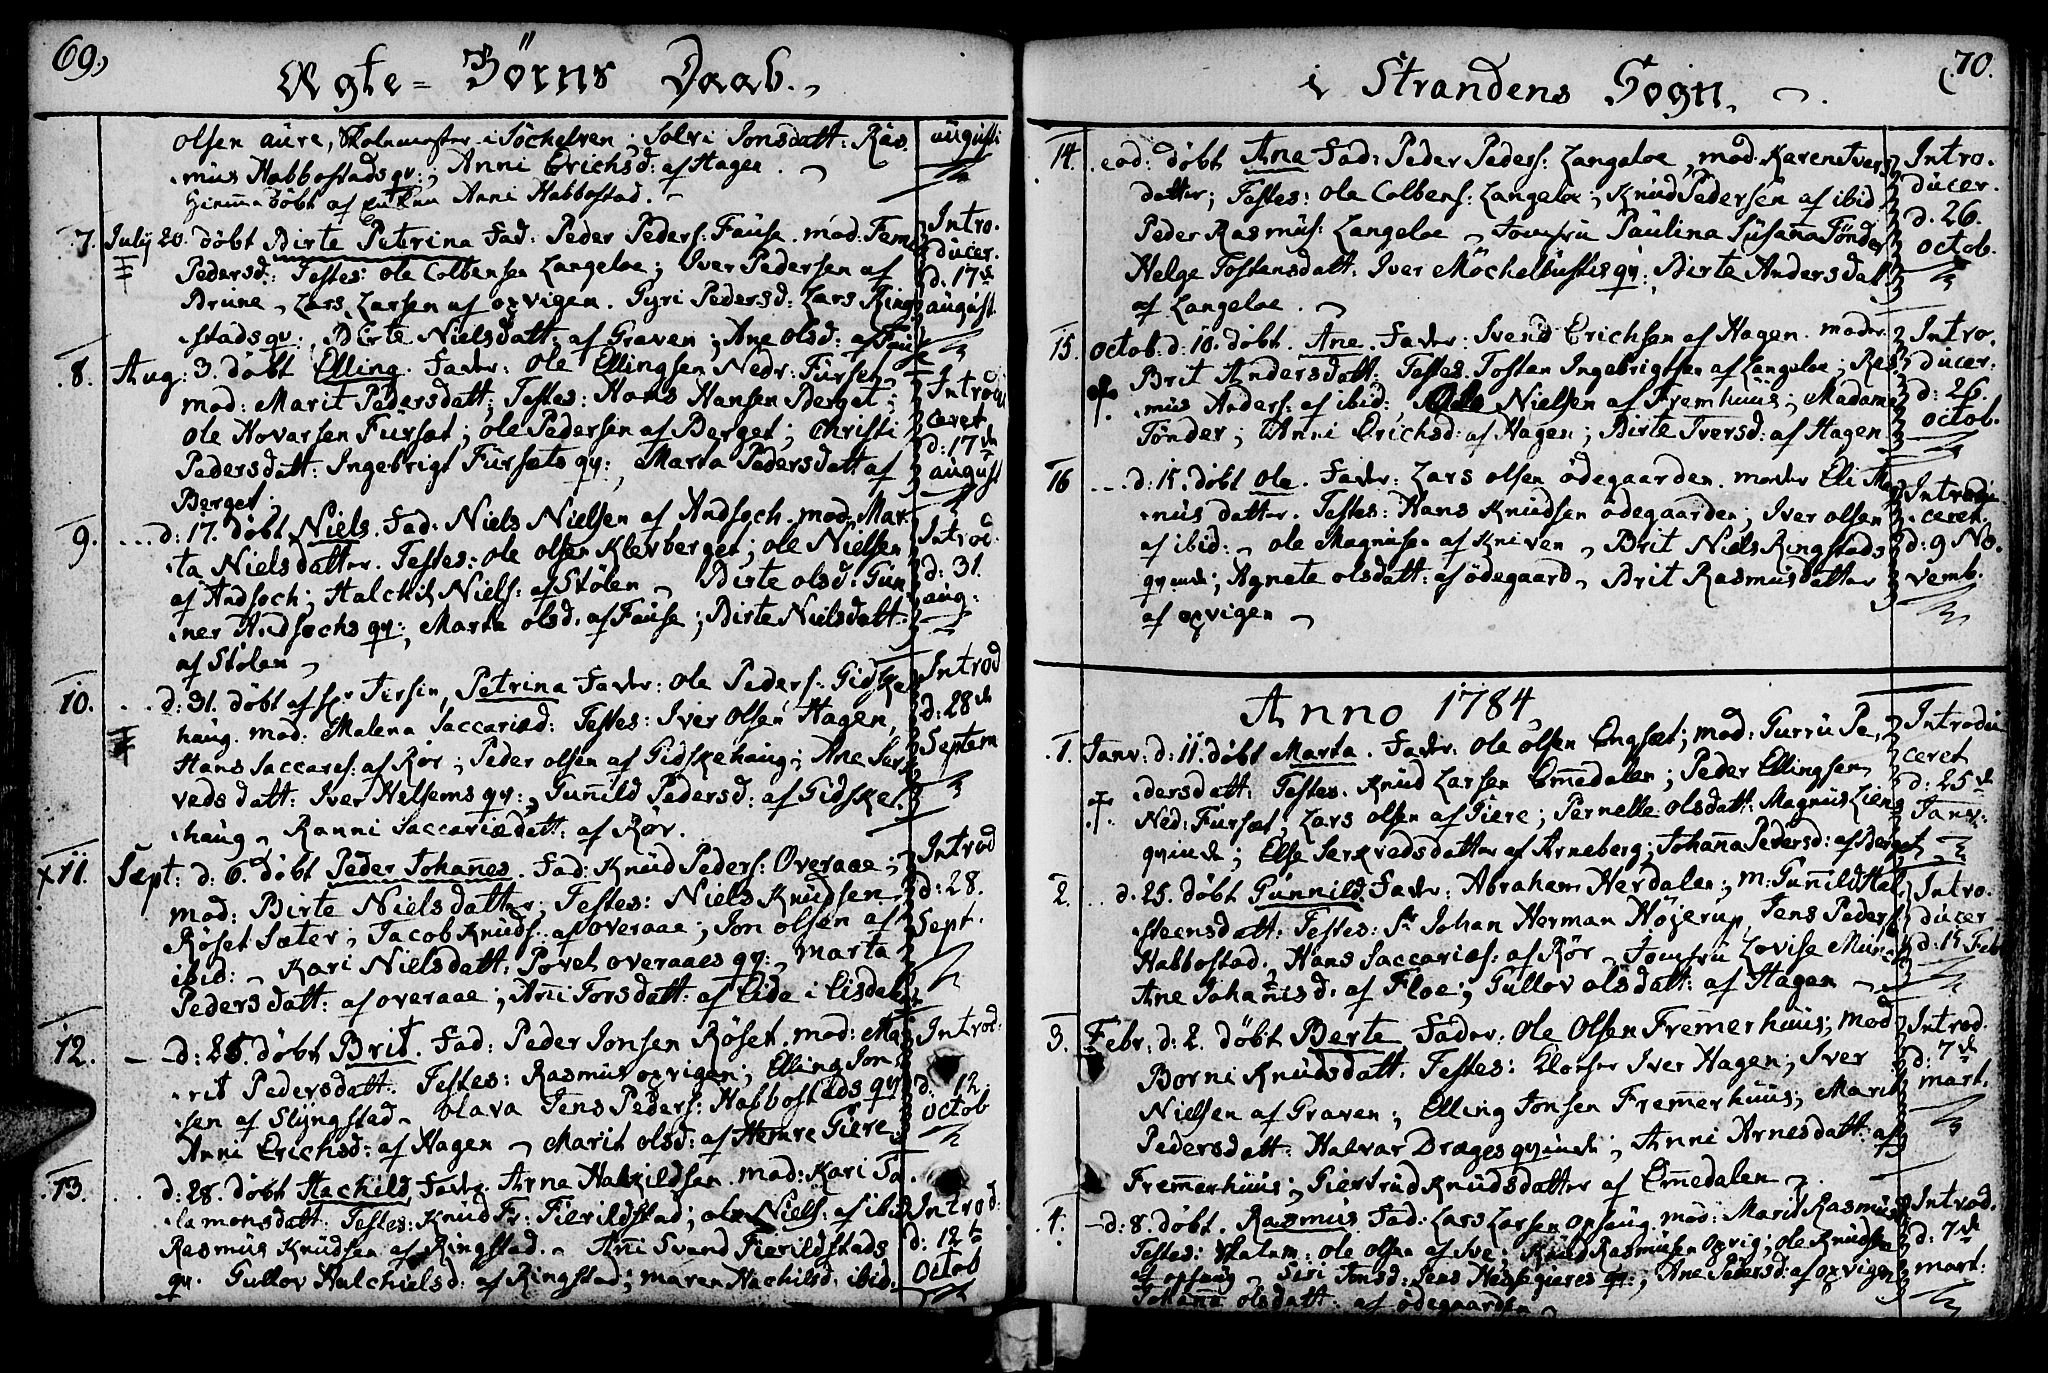 69,)
Ægte-Börns Daab.,
olsen aure, Skolemester i Söchelven; Solvi Jonsdatt: Ras,
mus Habbostads qv:, Anni Erichsd: af Hagen.
Hiemmedöbt af Anni Habbostad.
augusti
7. July 20. döbt Birte Petrina Fad: Peder Peders: Fause. mod. Feme
Pedersd: Testes: ole Colbensen Langeloe; Iver Pedersen af
Brune, Lars Larsen af opvigen. Gyri Pedersd: Lars Ring,
stads qv:, Birte Nielsdatt: af Graven; Ane olsd: af Fause
Intro,
ducer.
d. 17de
august
8. Aug: 3. döbt Elling. Fader: ole Ellingsen Nedr: Fursæt,
mod: Marit Pedersdatt: Testes: Hans Hansen Berget;
ole Hovarsen Fursæt; ole Pedersen af Berget; Christi
Pedersdatt: Ingebrigt Fursæts qv:, Marta Pedersdatt af
Berget.
Introdu
ceret
d: 17de
august
9. ... d: 17. döbt Niels. Fad: Niels Nielsen af Andsoch. mod, Mar,
ta Nielsdatter. Testes: ole olsen Klevberget; ole Nielsen
af Andsoch; Halchil Niels: af Stölen, Birte olsd: Gun
ner Andsochs qv:, Marta olsd. af Fause; Birte Nielsdatt:
af Stölen,
Introd.
d: 31.
aug:
10. ... d: 31. döbt af hr Jersin, Petrina Fader: ole Peders: Gidske
haug. mod: Malena Saccariæd: Testes: Iver olsen Hagen,
Hans Saccares: af Rör; Peder olsen af Gidskehaug; Ane Ser
veds datt: Iver Helsems qv:, Gunnild Pedersd: af Gidske,
haug, Ranni Saccariædatt: af Rör.
Introd
d: 28de
Septem
11. Sept: d: 6. döbt Peder Johannes. Fad: Knud Peders: Overaae;
mod: Birte Nielsdatter, Testes: Niels Knudsen
Röset Sæter; Jacob Knuds: af overaae; Jon olsen af
ibid: Kari Nielsdatt: Povel overaaes qv:, marta
Pedersdatt: af overaae; Anni Torsdatt: af Eide i Eisdalen
Introd
d: 28.
Sept.
12. - d: 25. döbt Brit. Fad: Peder Jonsen Röset. mod: Ma,
rit Pedersdatt. Testes: Rasmus opvigen; Elling Jon,
sen af Slyngstad. olava Jens Peders: Habbostads qv
Anni Erichsd: af Hagen, Marit olsd: af Hemre Giere,
Introd:
d: 12.
octob
13. ... d: 28. döbt Hachild, Fader. Arne Halkildsen. mod: Kari Sa,
lamonsdatt: Testes: Knud Fr: Fierildstad; ole Niels: af ibid
Rasmus Knudsen af Ringstad. Anni Svend Fierildstads
qv. Gullov Halchielsd: af Ringstad; maren Hachilsd: ibid.
Introd:
d: 12te
octob
70.
i Strandens Sogn.
14. eod: döbt Ane Fad: Peder Peders: Langeloe, mod. Karen Ivers
datter; Testes: ole Colbens: Langeloe; Knud Pedersen af ibid
Peder Rasmus: Langeloe, Jomfru Paulina Susanna Tönder
Helge Tostensdatt: Iver Möchelbustes qv:, Birte Andersdatt
af Langeloe.
Intro.
ducer.
d: 26.
octob.
15. octob: d: 10. döbt. Ane. Fader: Svend Erichsen af Hagen. moder
Brit Andersdatt: Testes: Tosten Ingebrigtsen af Langeloe; Ras
mus Anders: af ibid:, Ole Nielsen af Fremhuus; Madame
Tönder; Anni Erichsd: af Hagen; Birte Iversd: af Hagen
Intro.
ducer:
d: 26.
octob.
16 ... d: 15. döbt ole. Fader: Lars olsen ödegaarden. moder Eli Mag
nus datter. Testes: Hans Knudsen ödegaarden; Iver olsen
af ibid:, ole Magnusen af Kniven, Brit Niels Ringstads
qvinde; Agnete olsdatt: af ödegaard, Brit Rasmusdatter
af opvigen,
Introdu
ceret
d: 9 No.
vemb.
Anno 1784
1. Janv: d: 11. döbt Marta. Fader: ole olsen Engset; mod: Gurru Pe,
dersdatt: Testes. Knud Larsen Emmedalen; Peder Ellingsen
Ned: Fursæt, Lars olsen af Giere; Pernelle olsdatt: Magnus Liens
qvinde; Else Serkvedsdatter af Arneberg; Johanna Pedersd: af Berget
Introdu
ceret
d: 25de
Janv:
2. ... d. 25. döbt Gunnild. Fader: Abraham Herdalen; m: Gunnild Hal
steensdatt: Testes: Sr Johan Herman Höjerup, Jens Peders
Habbostad. Hans Saccaries: af Rör, Jomfru Lovise Munch
Ane Johannisd. af Floe; Gullov olsdatt: af Hagen
Intro.
ducer
d: 15 Feb
3. Febr: d: 2. döbt Berte Fader. Ole Olsen Fremmerhuus; mod
Borni Knudsdatt. Testes: Klocker Iver Hagen; Iver
Nielsen af Graven; Elling Jonsen Fremmerhuus; Marit
Pedersdatt. Halvar Dræges qvinde; Anni Arnesdatt: af
Fremmerhuus; Giertrud Knudsdatter af Emmedalen
Introd.
d: 7de
mart.
4. - d: 8. döbt. Rasmus Fad: Lars Larsen opsaug. mod: Marit Rasmus
Testes: Skolem: ole olsen af Ive; Knud Rasmusen opvig; ole Knudsen
af opsaug, Siri Jonsd: Jens Hessegieres qv:, Ane Pedersd: af opvigen
Johanna olsdatt: af ödegaarden
Introd.
d: 7de
mart: